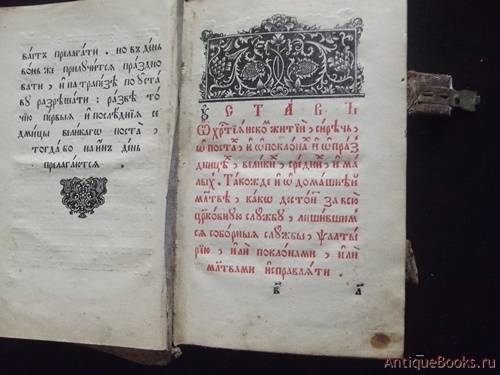 ваетъ прелагати. но въ день
вонь же прилучится праздно
вати, и на трапезѣ по уста
ву разрѣшати: развѣ то
чїю первыя и послѣднїя се
дмицы великагѡ поста,
тогда бо на инъ день
прелагаются.
УСТАВЪ
ѡ хрⷭ҇тїѧнскоⷨ житїи, сирѣчь,
ѡ постаⷯ и ѡ поклонаⷯ и ѡ праⷥ
дницеⷯ, великиⷯ, среднⷯи и ма
лыⷯ. Такожде и ѡ домашнеи
млⷮвѣ, какѡ достоиⷮ за всю
црⷦ҇овную службу, лишившим
сѧ соборныѧ службы, ѱалты
рїю, или поклонами, или
млⷮвами исправлѧти.
в҃ а҃
AntiqueBooks.ru